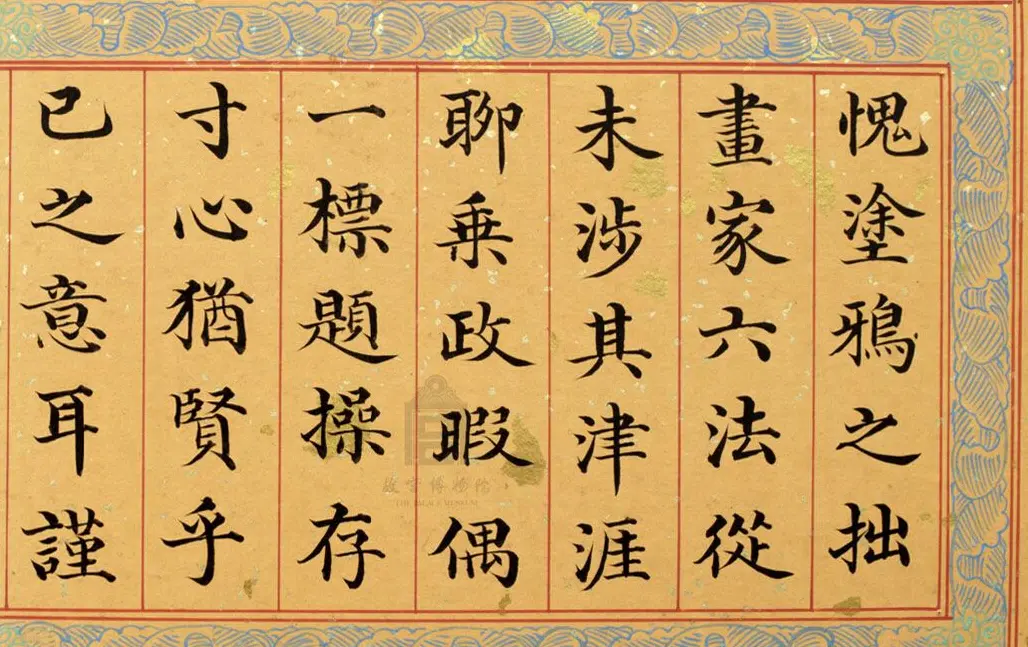 愧塗鴉之拙
畫家六法從
未涉其津涯
聊乗政暇偶
一標題操存
寸心猶賢乎
已之意耳謹
故宮博物院
THE PALACE MUSEUM